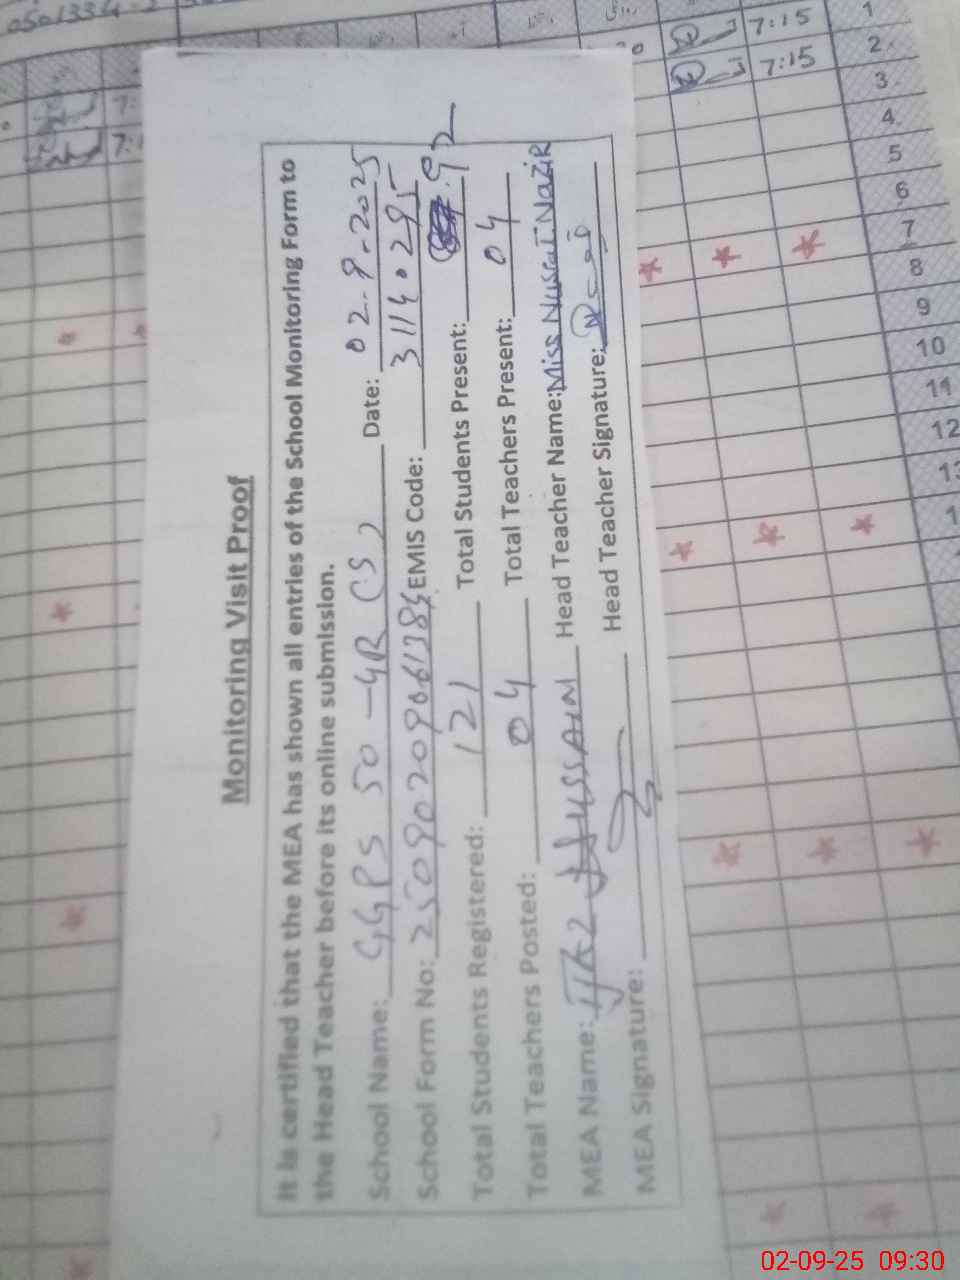 Monitoring Visit Proof
It is certified that the MEA has shown all entries of the School Monitoring Form to
the Head Teacher before its online submission.
School Name: GGPS 50-4R (S) Date: 02.9.2025
School Form No: EMIS Code: 31140295
Total Students Registered: 121 Total Students Present: 92
Total Teachers Posted: 04 Total Teachers Present: 04
MEA Name: IJAZ HUSSAIN Head Teacher Name: Miss Nusrat Nazir
MEA Signature: Head Teacher Signature:
7:15
7:15
1
2
3
4
5
6
7
8
9
10
11
12
02-09-25 09:30